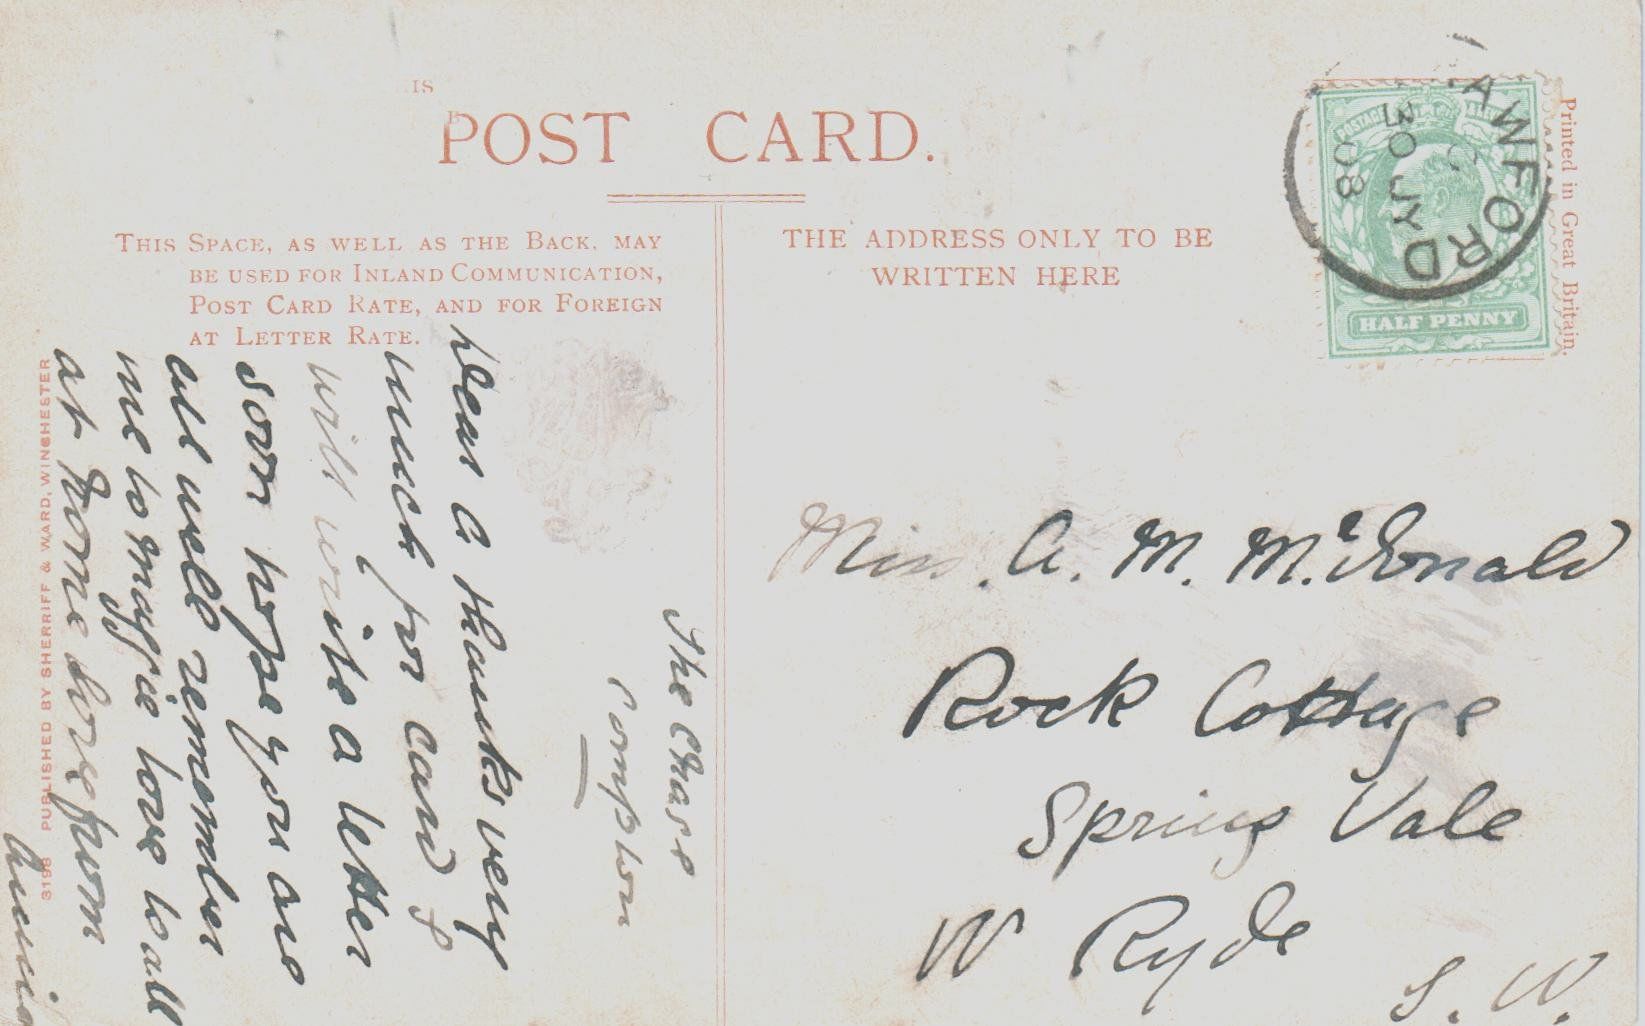 POST CARD.
THIS SPACE, AS WELL AS THE BACK, MAY
BE USED FOR INLAND COMMUNICATION,
POST CARD RATE, AND FOR FOREIGN
AT LETTER RATE.
THE ADDRESS ONLY TO BE
WRITTEN HERE
Printed in Great Britain.
POSTAGE
HALF PENNY
AWFORD
C
30 JY
08
The Chase
Compton
Dear A thanks very
much for card &
will write a letter
soon hope you are
all well remember
me to maggie love to all
at home love from
Miss. A. M. McDonald
Rock Cottage
Spring Vale
W Ryde
I. W.
S198 PUBLISHED BY SHERRIFF & WARD, WINCHESTER